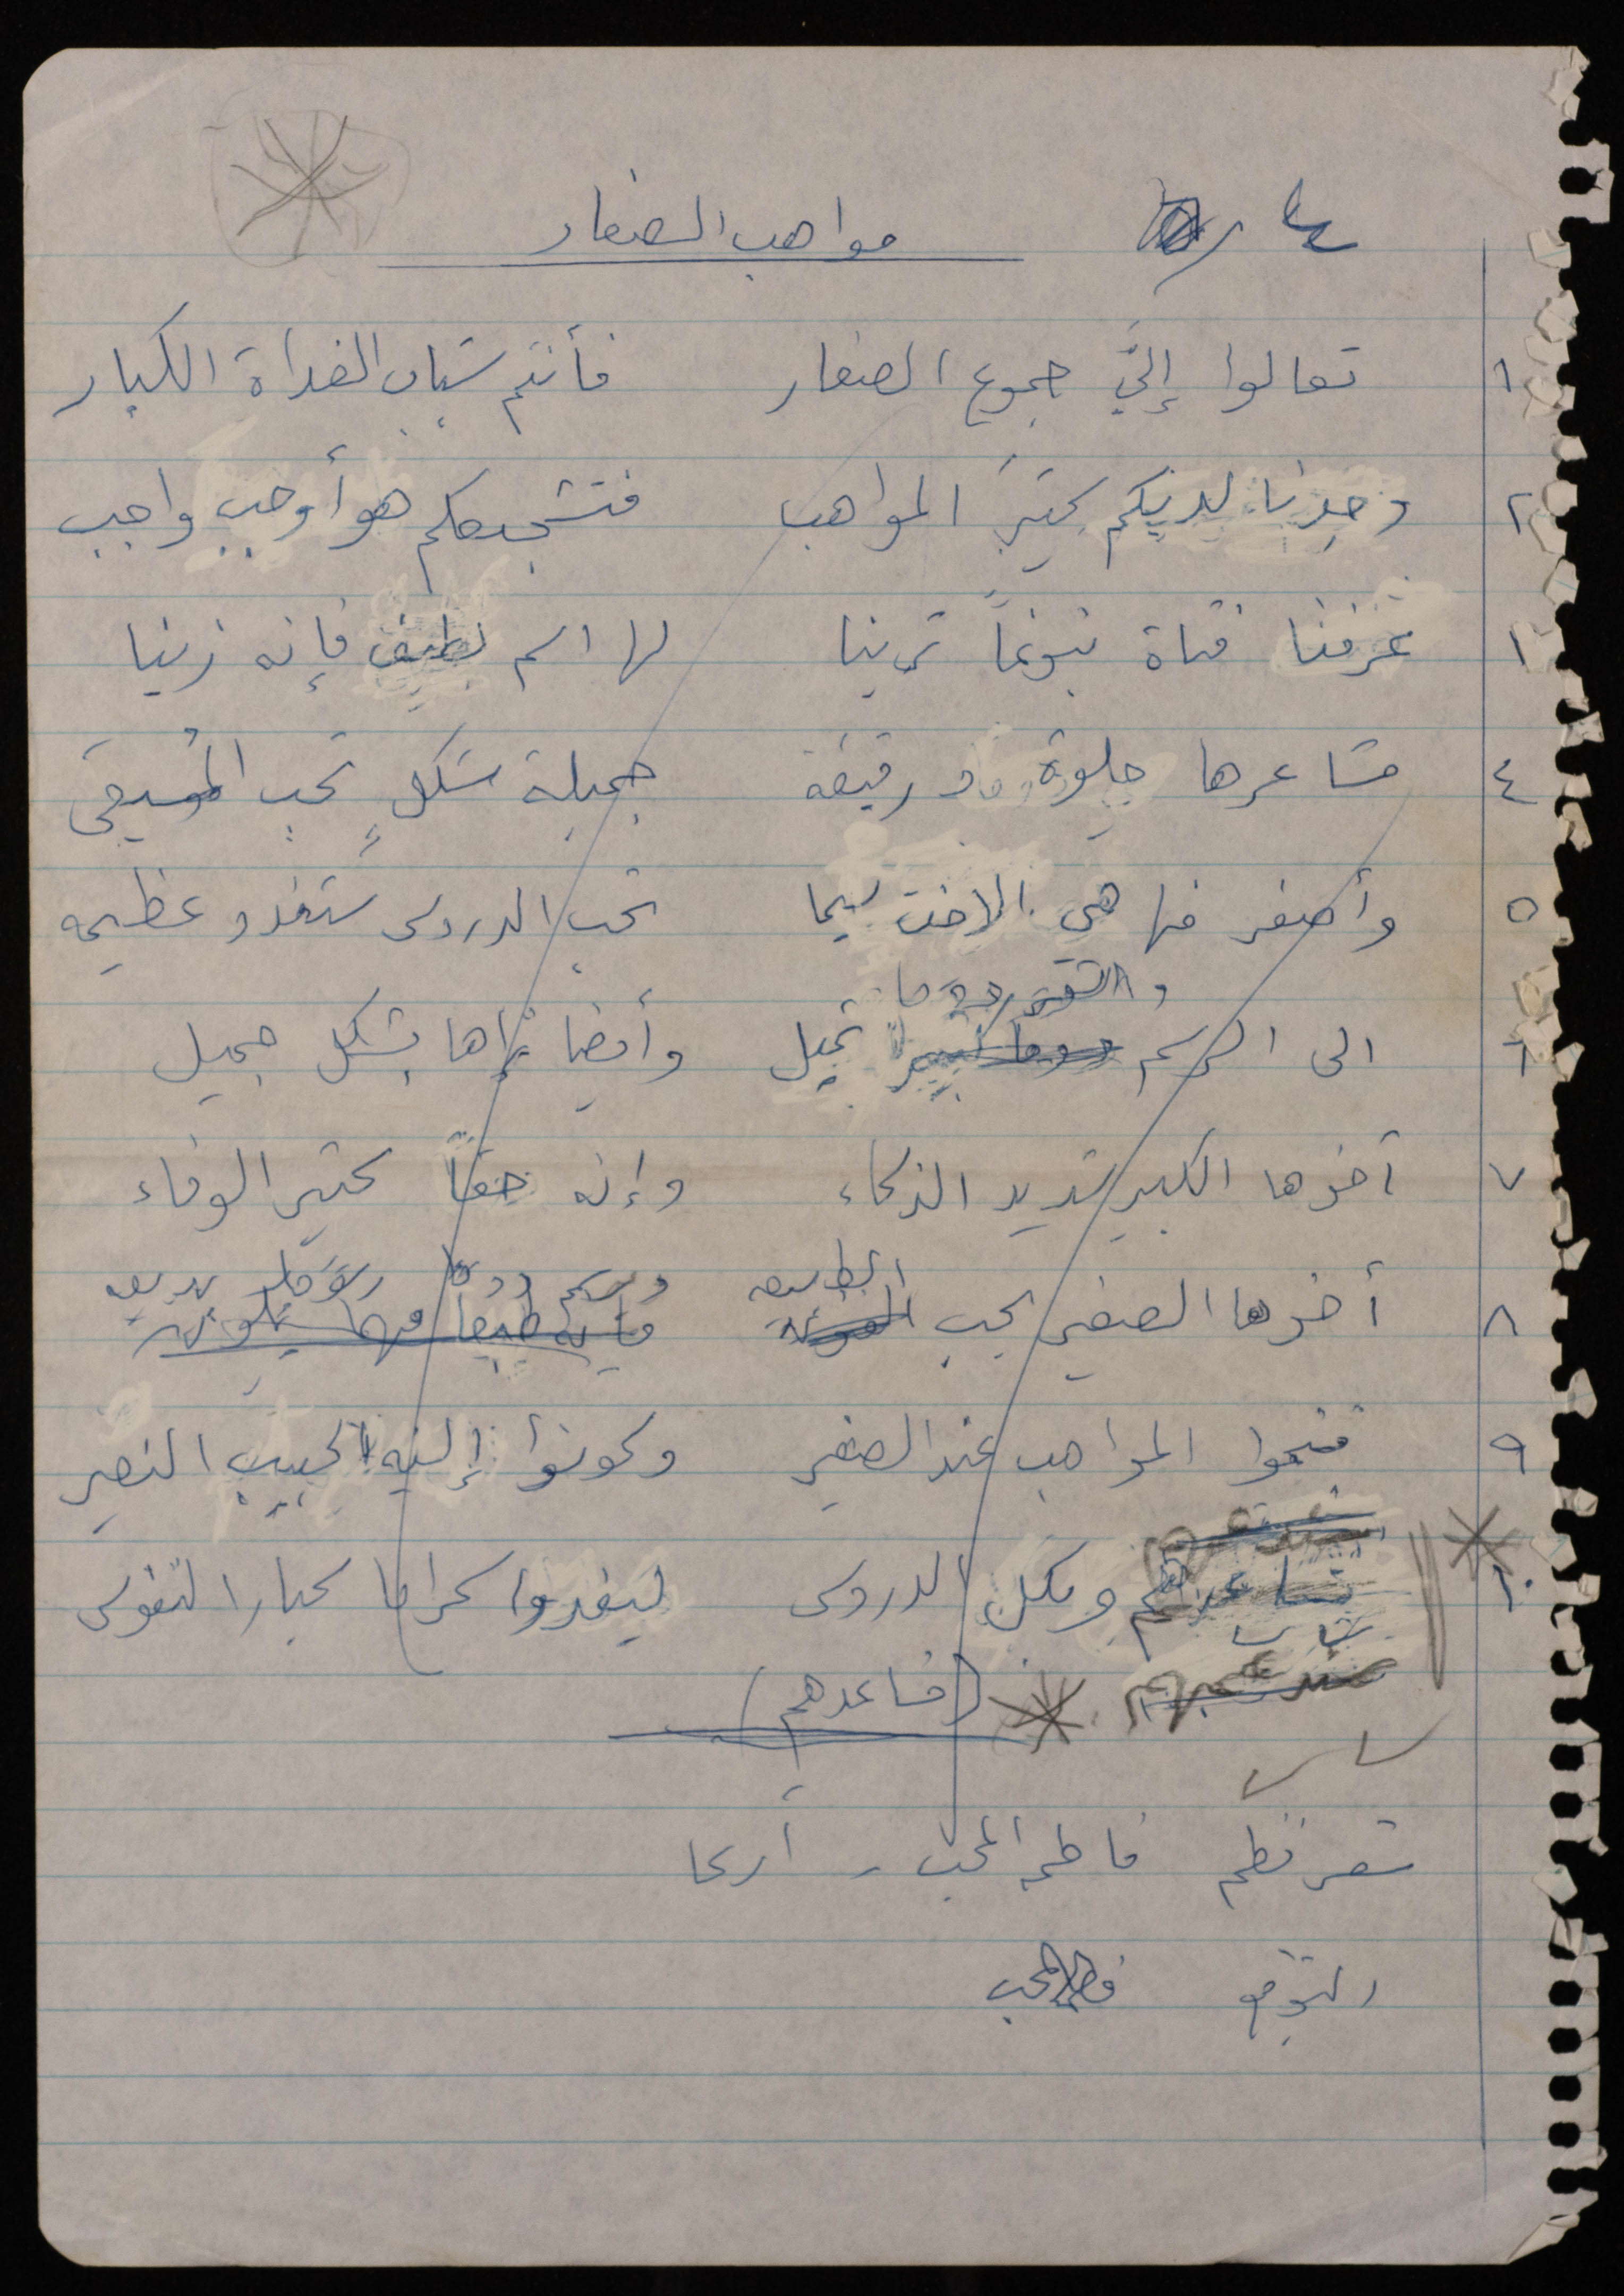 ٤
مواهب الصغار
١ تعالوا إليَّ جموع الصغار فأنتم شباب الغداة الكبار
٢ وجدنا لديكم كثيرَ المواهب فتشجيعكم هو أوجب واجب
١ عرفنا فتاة نبوغاً ترينا لها اسم لطيف فإنه زينا
٤ مشاعرها حلوة رقيقة جميلة شكلٍ تحب الموسيقى
٥ وأصغر منها هي الاخت ليما تحب الدروس ستغدو عظيمه
والشعر دوما
٦ الى الرسم تميل وأيضا نراها بشكل جميل
٧ أخوها الكبير شديد الذكاء وإنه حقاً كثير الوفاء
الطبيعه ويرسم دوما بديعه
٨ أخوها الصغير يحب
٩ فنموا المواهب عند الصغير وكونوا إليه الحبيب النصير
١٠ وبكل الدروس ليغدوا كراما كبار النفوس
(فساعدهم)
شعر نظم فاطمة المحب - أريحا
التوقيع فاطمة المحب